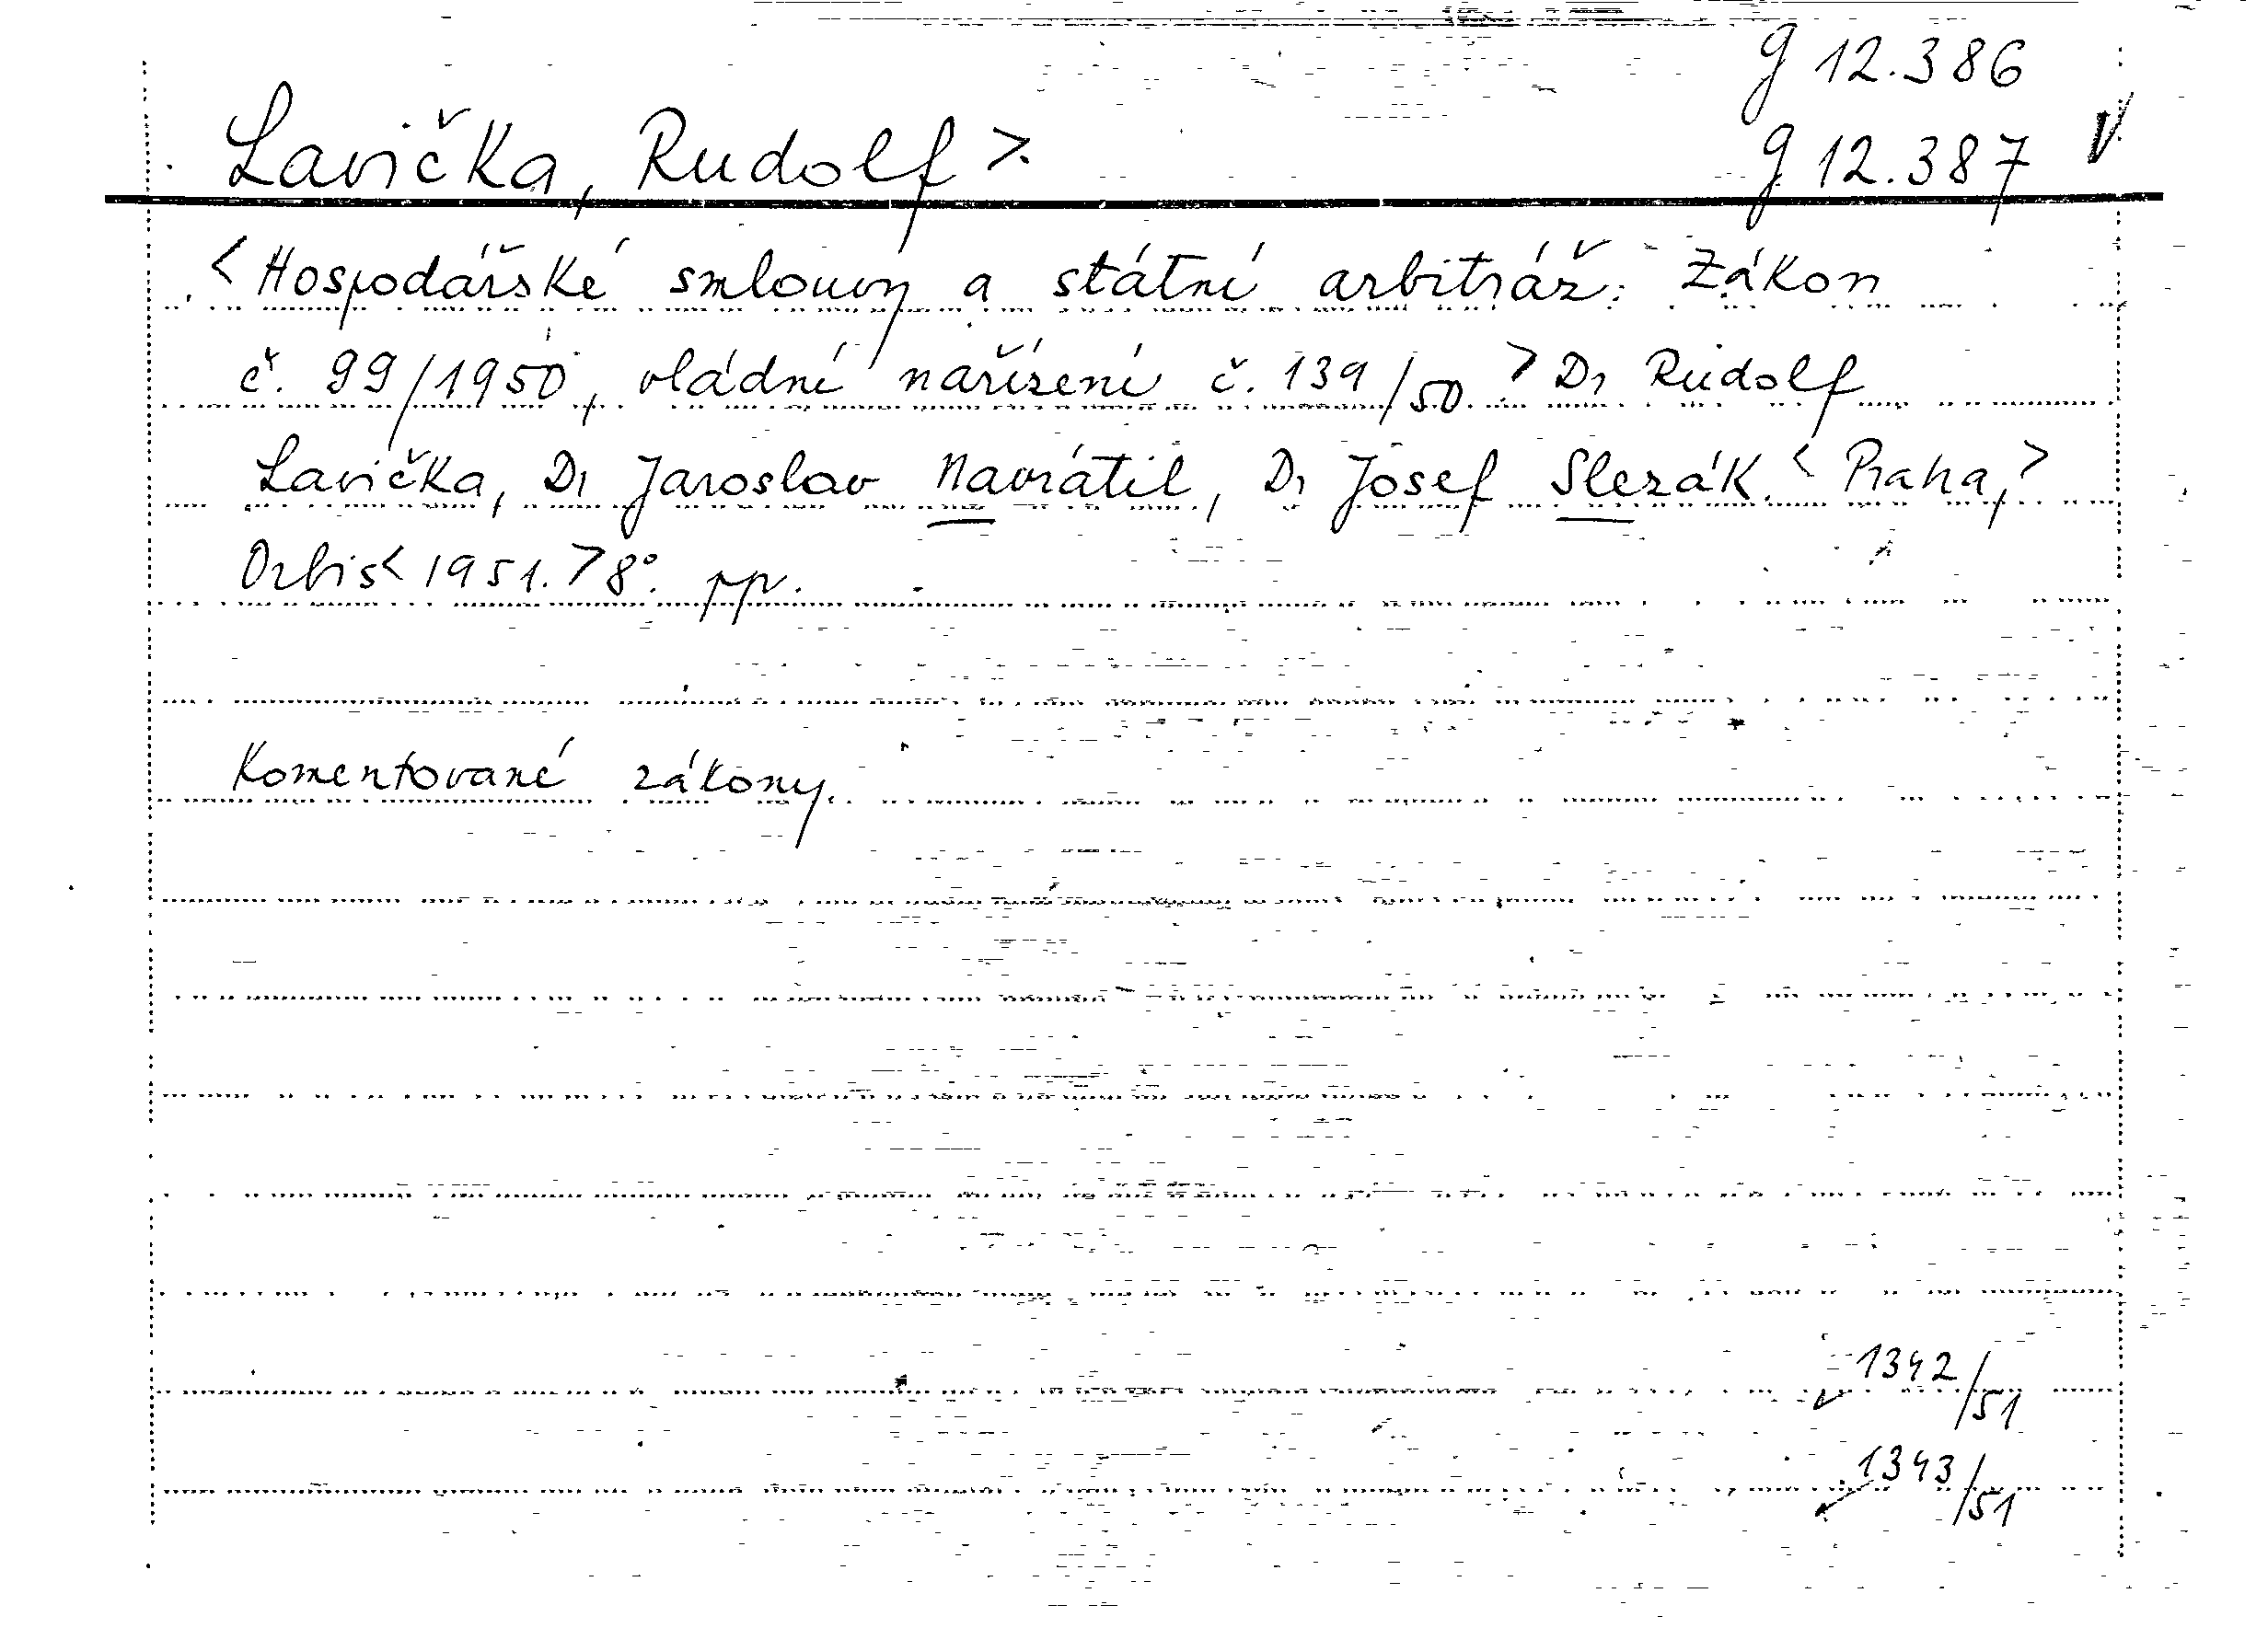 g 12.386
Lavička, Rudolf >.
g 12.387
< Hospodářské smlouvy a státní arbitráž: Zákon
č. 99/1950, vládní nařízení č. 139/50. > Dr Rudolf
Lavička, Dr Jaroslav Navrátil, Dr Josef Slezák. < Praha, >
Orbis < 1951. > 8°. pp.
Komentované zákony.
1342/51
1343/51